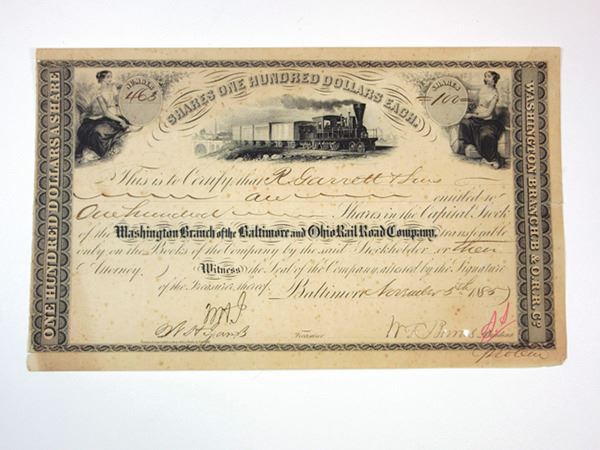 NUMBER
463
SHARES ONE HUNDRED DOLLARS EACH.
SHARES
=100=
ONE HUNDRED DOLLARS A SHARE
WASHINGTON BRANCH B & O.R.R. Co.
This is to Certify that R. Garrett & Sons
are entitled to
One hundred Shares in the Capital Stock
of the Washington Branch of the Baltimore and Ohio Rail Road Company, transferable
only on the Books of the Company by the said Stockholder or their
Attorney. Witness the Seal of the Company attested by the Signature
of the Treasurer thereof. Baltimore November 5th 185
Treasurer